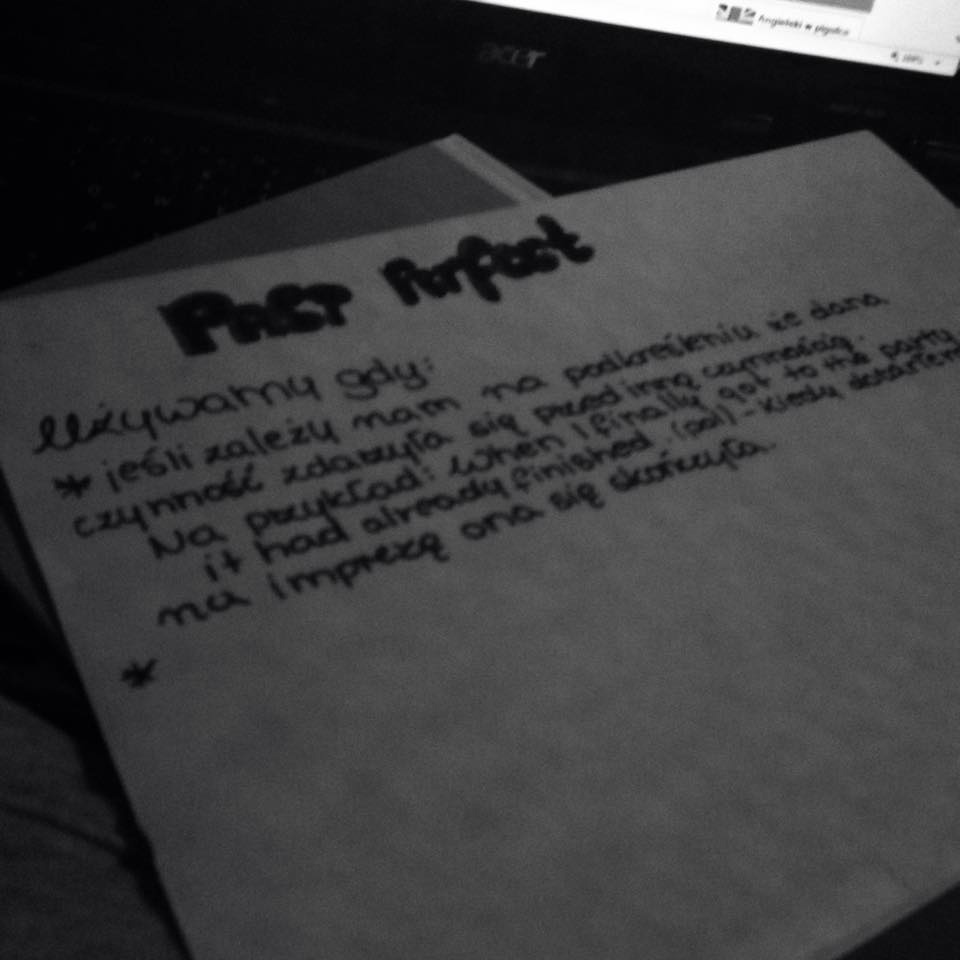 Angielski w pigułce
acer
PAST Perfect
Używamy gdy:
* jeśli zależy nam na podkreśleniu że dana
czynność zdarzyła się przed inną czynnością.
Na przykład: When I finally got to the party
it had already finished. (pol) - Kiedy dotarłem
na imprezę ona się skończyła.
*